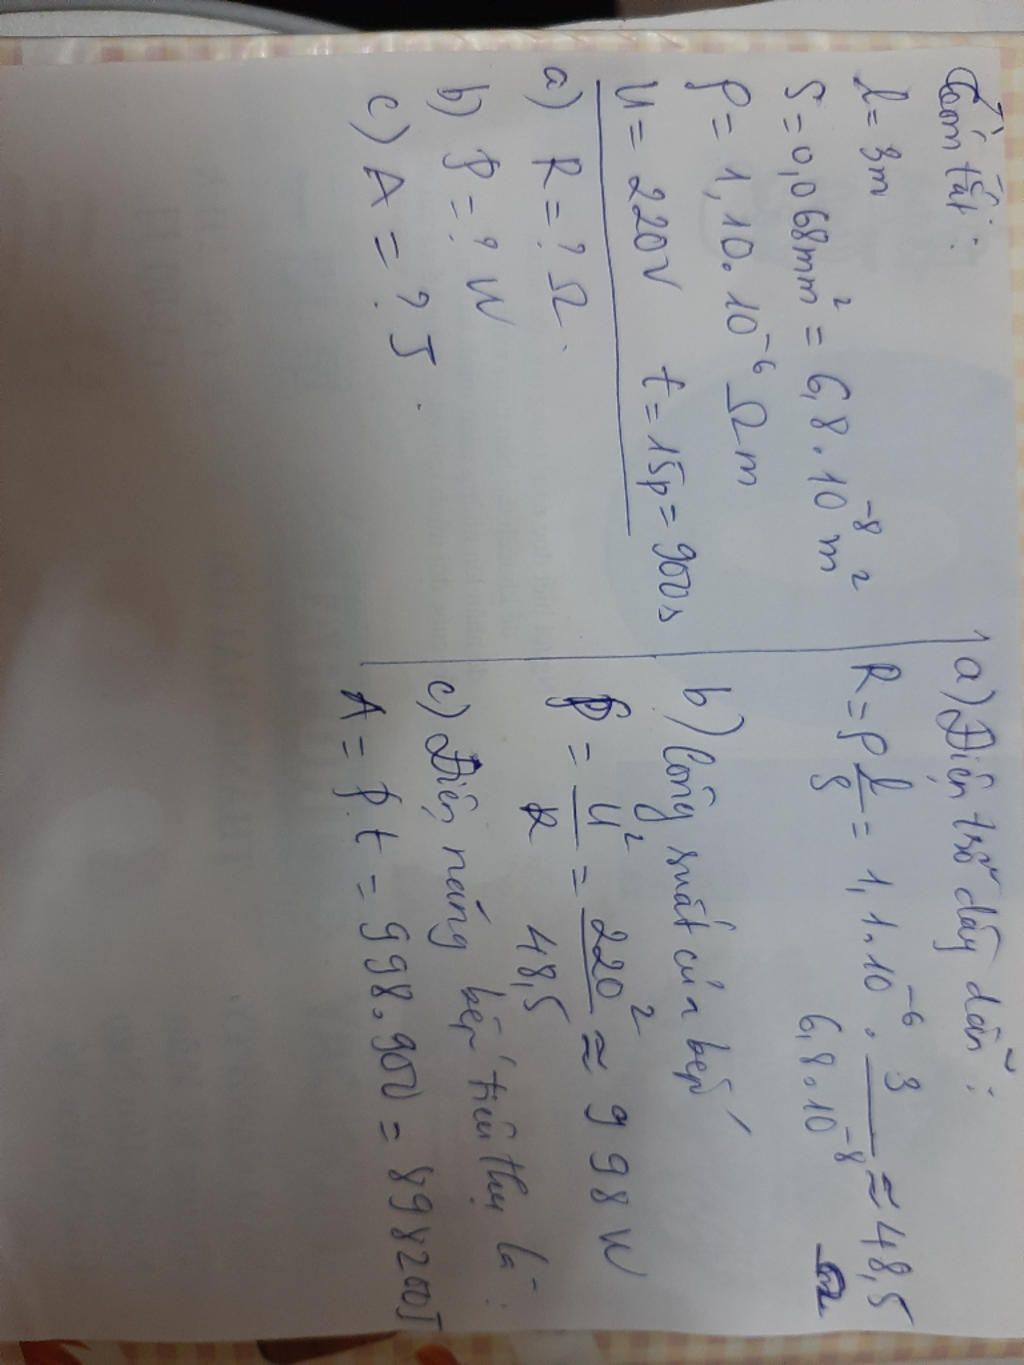 Tóm tắt:
l = 3m
S = 0,068mm² = 6,8.10⁻⁸ m²
ρ = 1,10.10⁻⁶ Ωm
U = 220V t = 15p = 900s
a) R = ? Ω.
b) P = ? W
c) A = ? J.
a) Điện trở dây dẫn:
R = ρ l/S = 1,1.10⁻⁶ . 3/6,8.10⁻⁸ ≈ 48,5 Ω
b) Công suất của bếp
P = U²/R = 220²/48,5 ≈ 998 W
c) Điện năng bếp tiêu thụ là:
A = P.t = 998.900 = 898200J